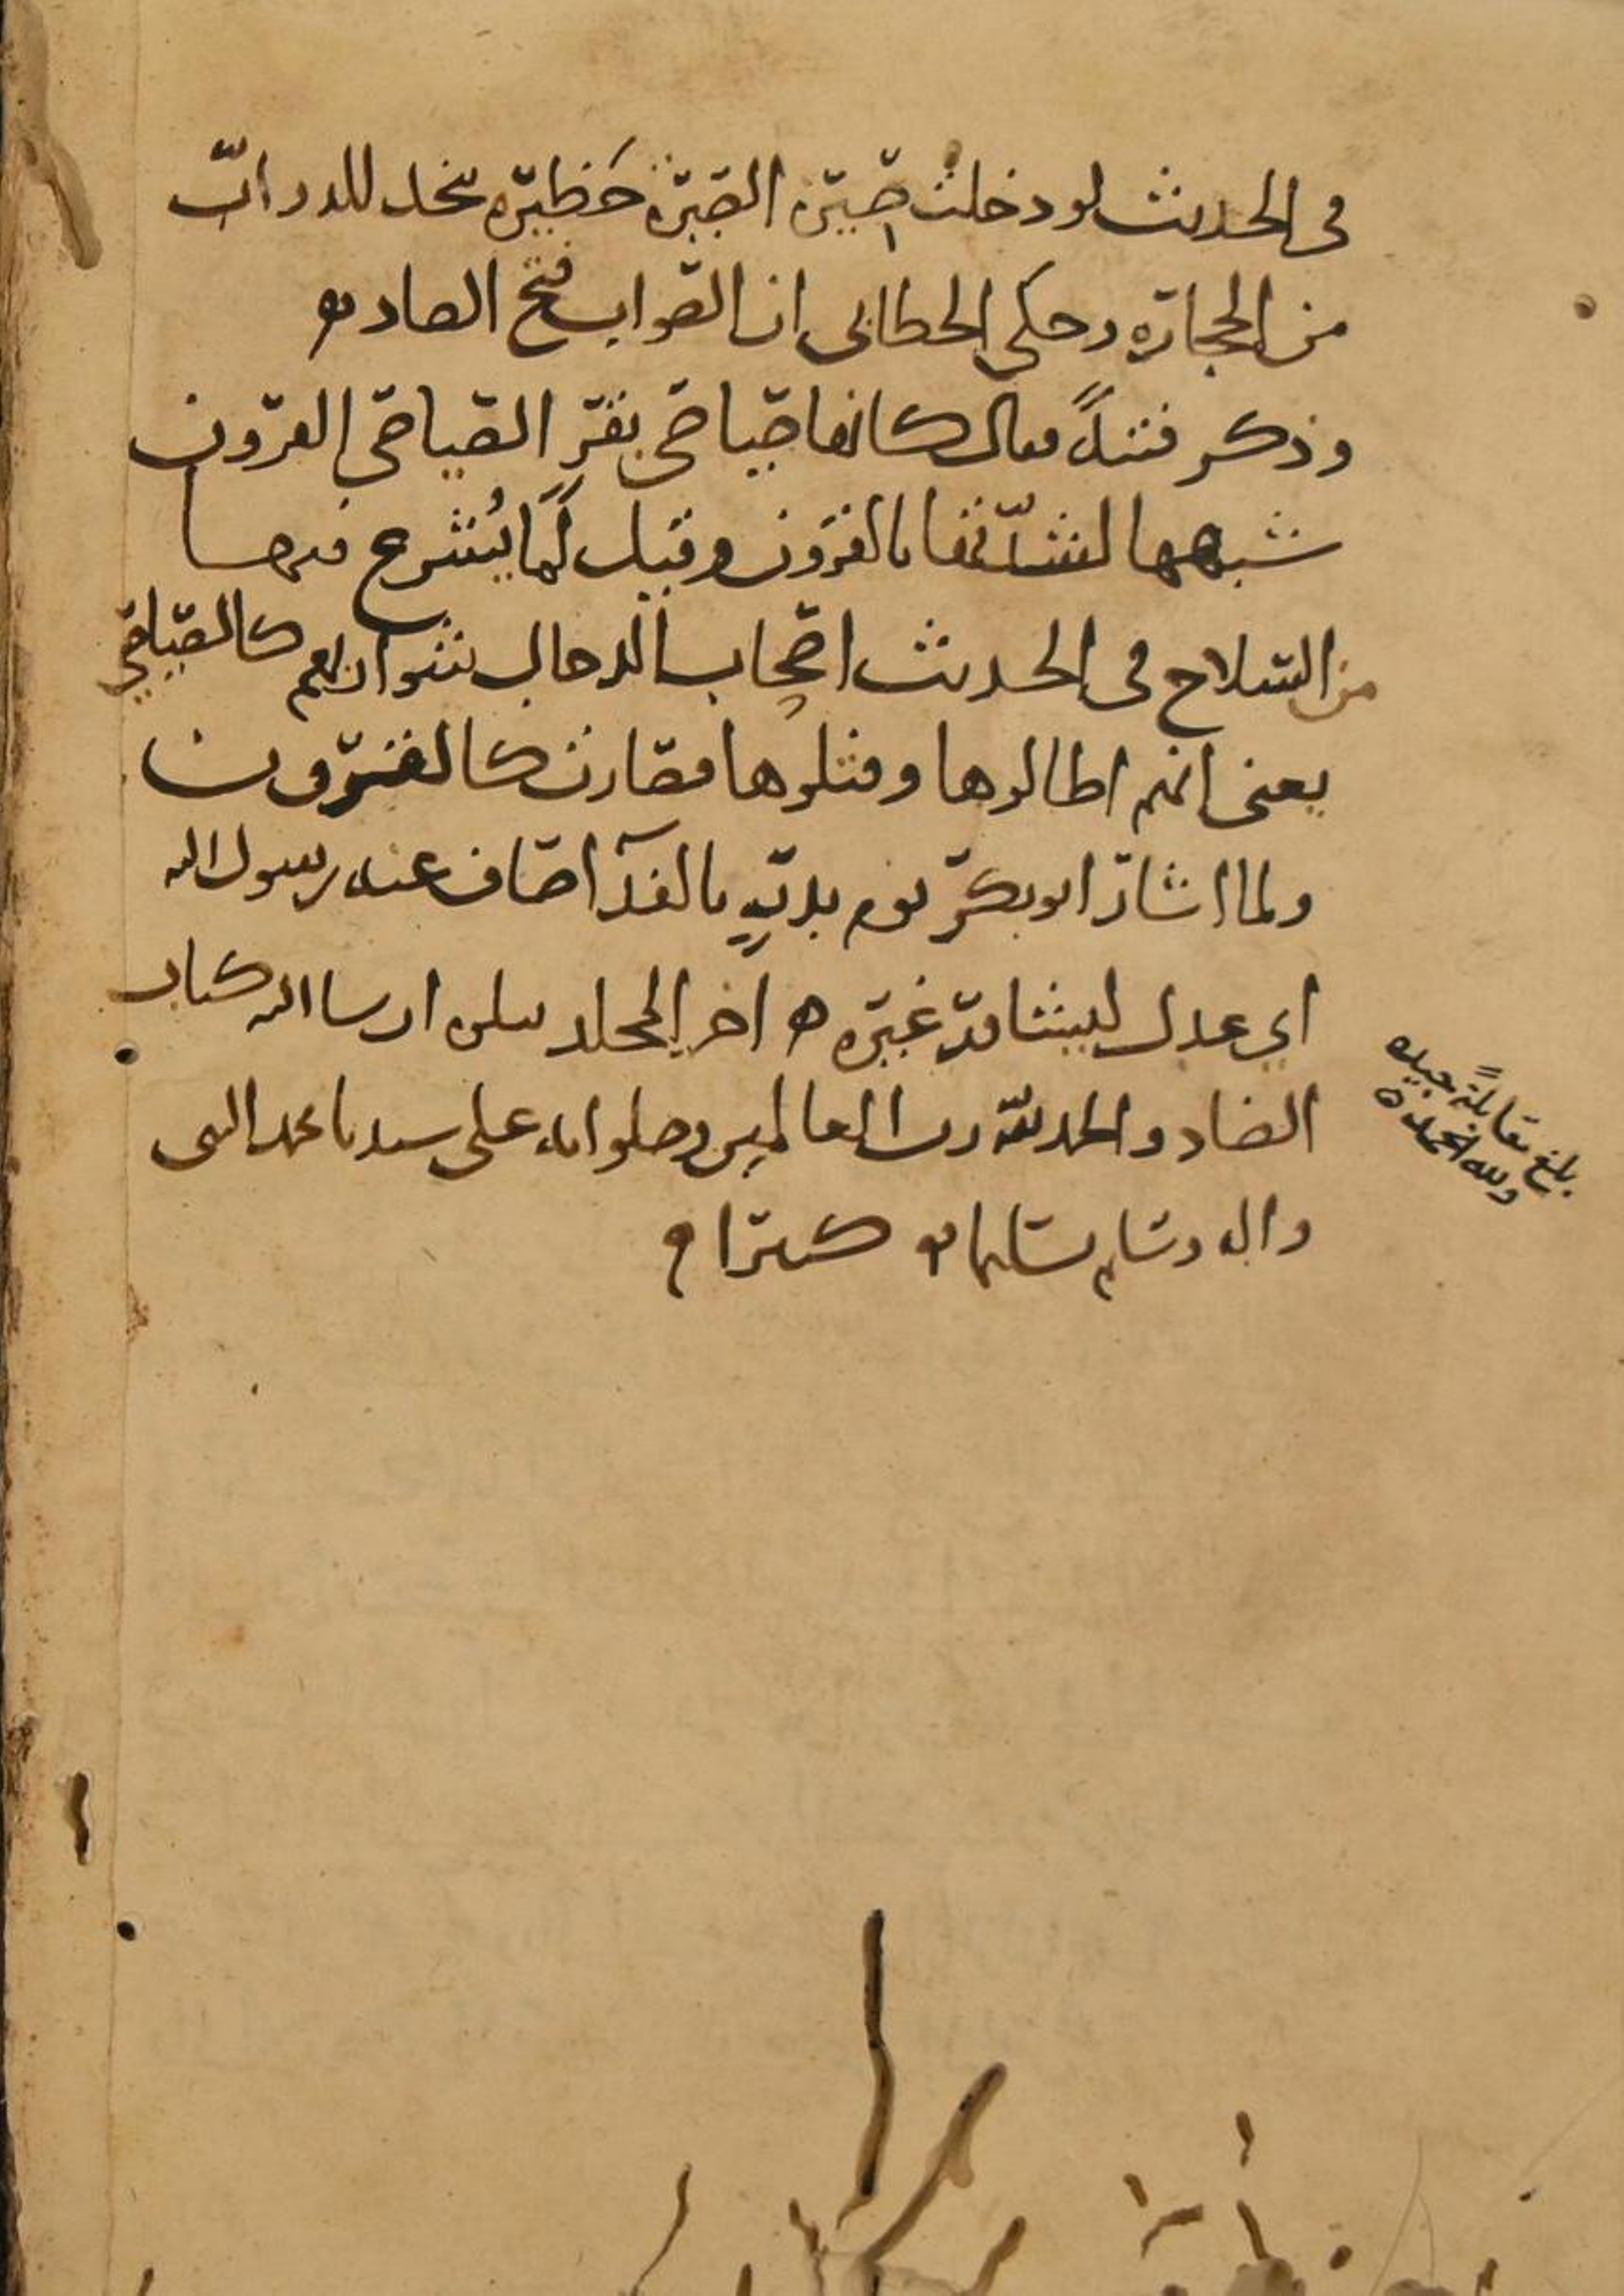 في الحديث لو دخلت صيرة الصيرة حظيرة تتخذ للدواب
من الحجارة وحكى الخطابي ان الصواب فتح الصاد
وذكر فتنة فقال كانها صياصي بقر الصياصي القرون
شبهها لشدتها بالقرون وقيل لما يشرع فيها
من السلاح في الحديث اصحاب الدجال شواربهم كالصياصي
يعني انهم اطالوها وفتلوها فصارت كالقرون
ولما اشار ابو بكر يوم بدر بالفدآ صاف عنه رسول الله
اي عدل ليشاور غيره ه اخر المجلد يتلوه ان شا الله كتاب
الضاد والحمد لله رب العالمين وصلواته على سيدنا محمد النبي
واله وسلم تسليما كثيرا
بلغ مقابلة جيده
ولله الحمد